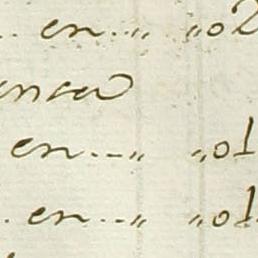 .. en...„ „02
en...„ „01
. en...„ „01